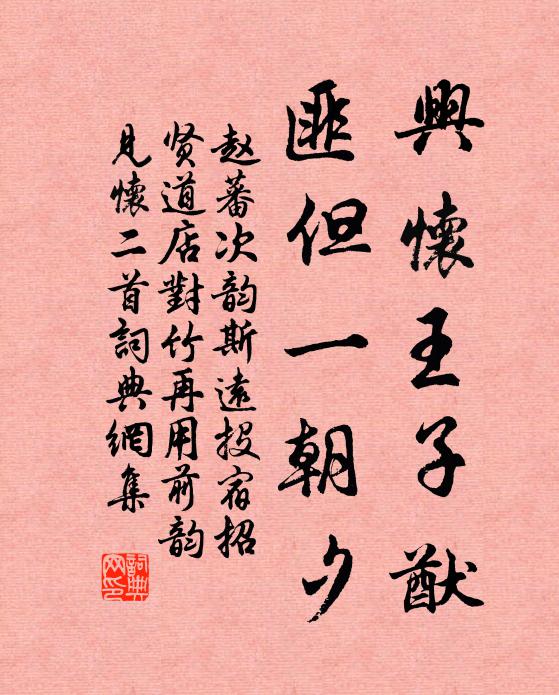 興懷王子猷
匪但一朝夕
赵蕃次韵斯遠投宿招
贤道店對竹再用前韵
見懷二首詞典網集
詞典网印